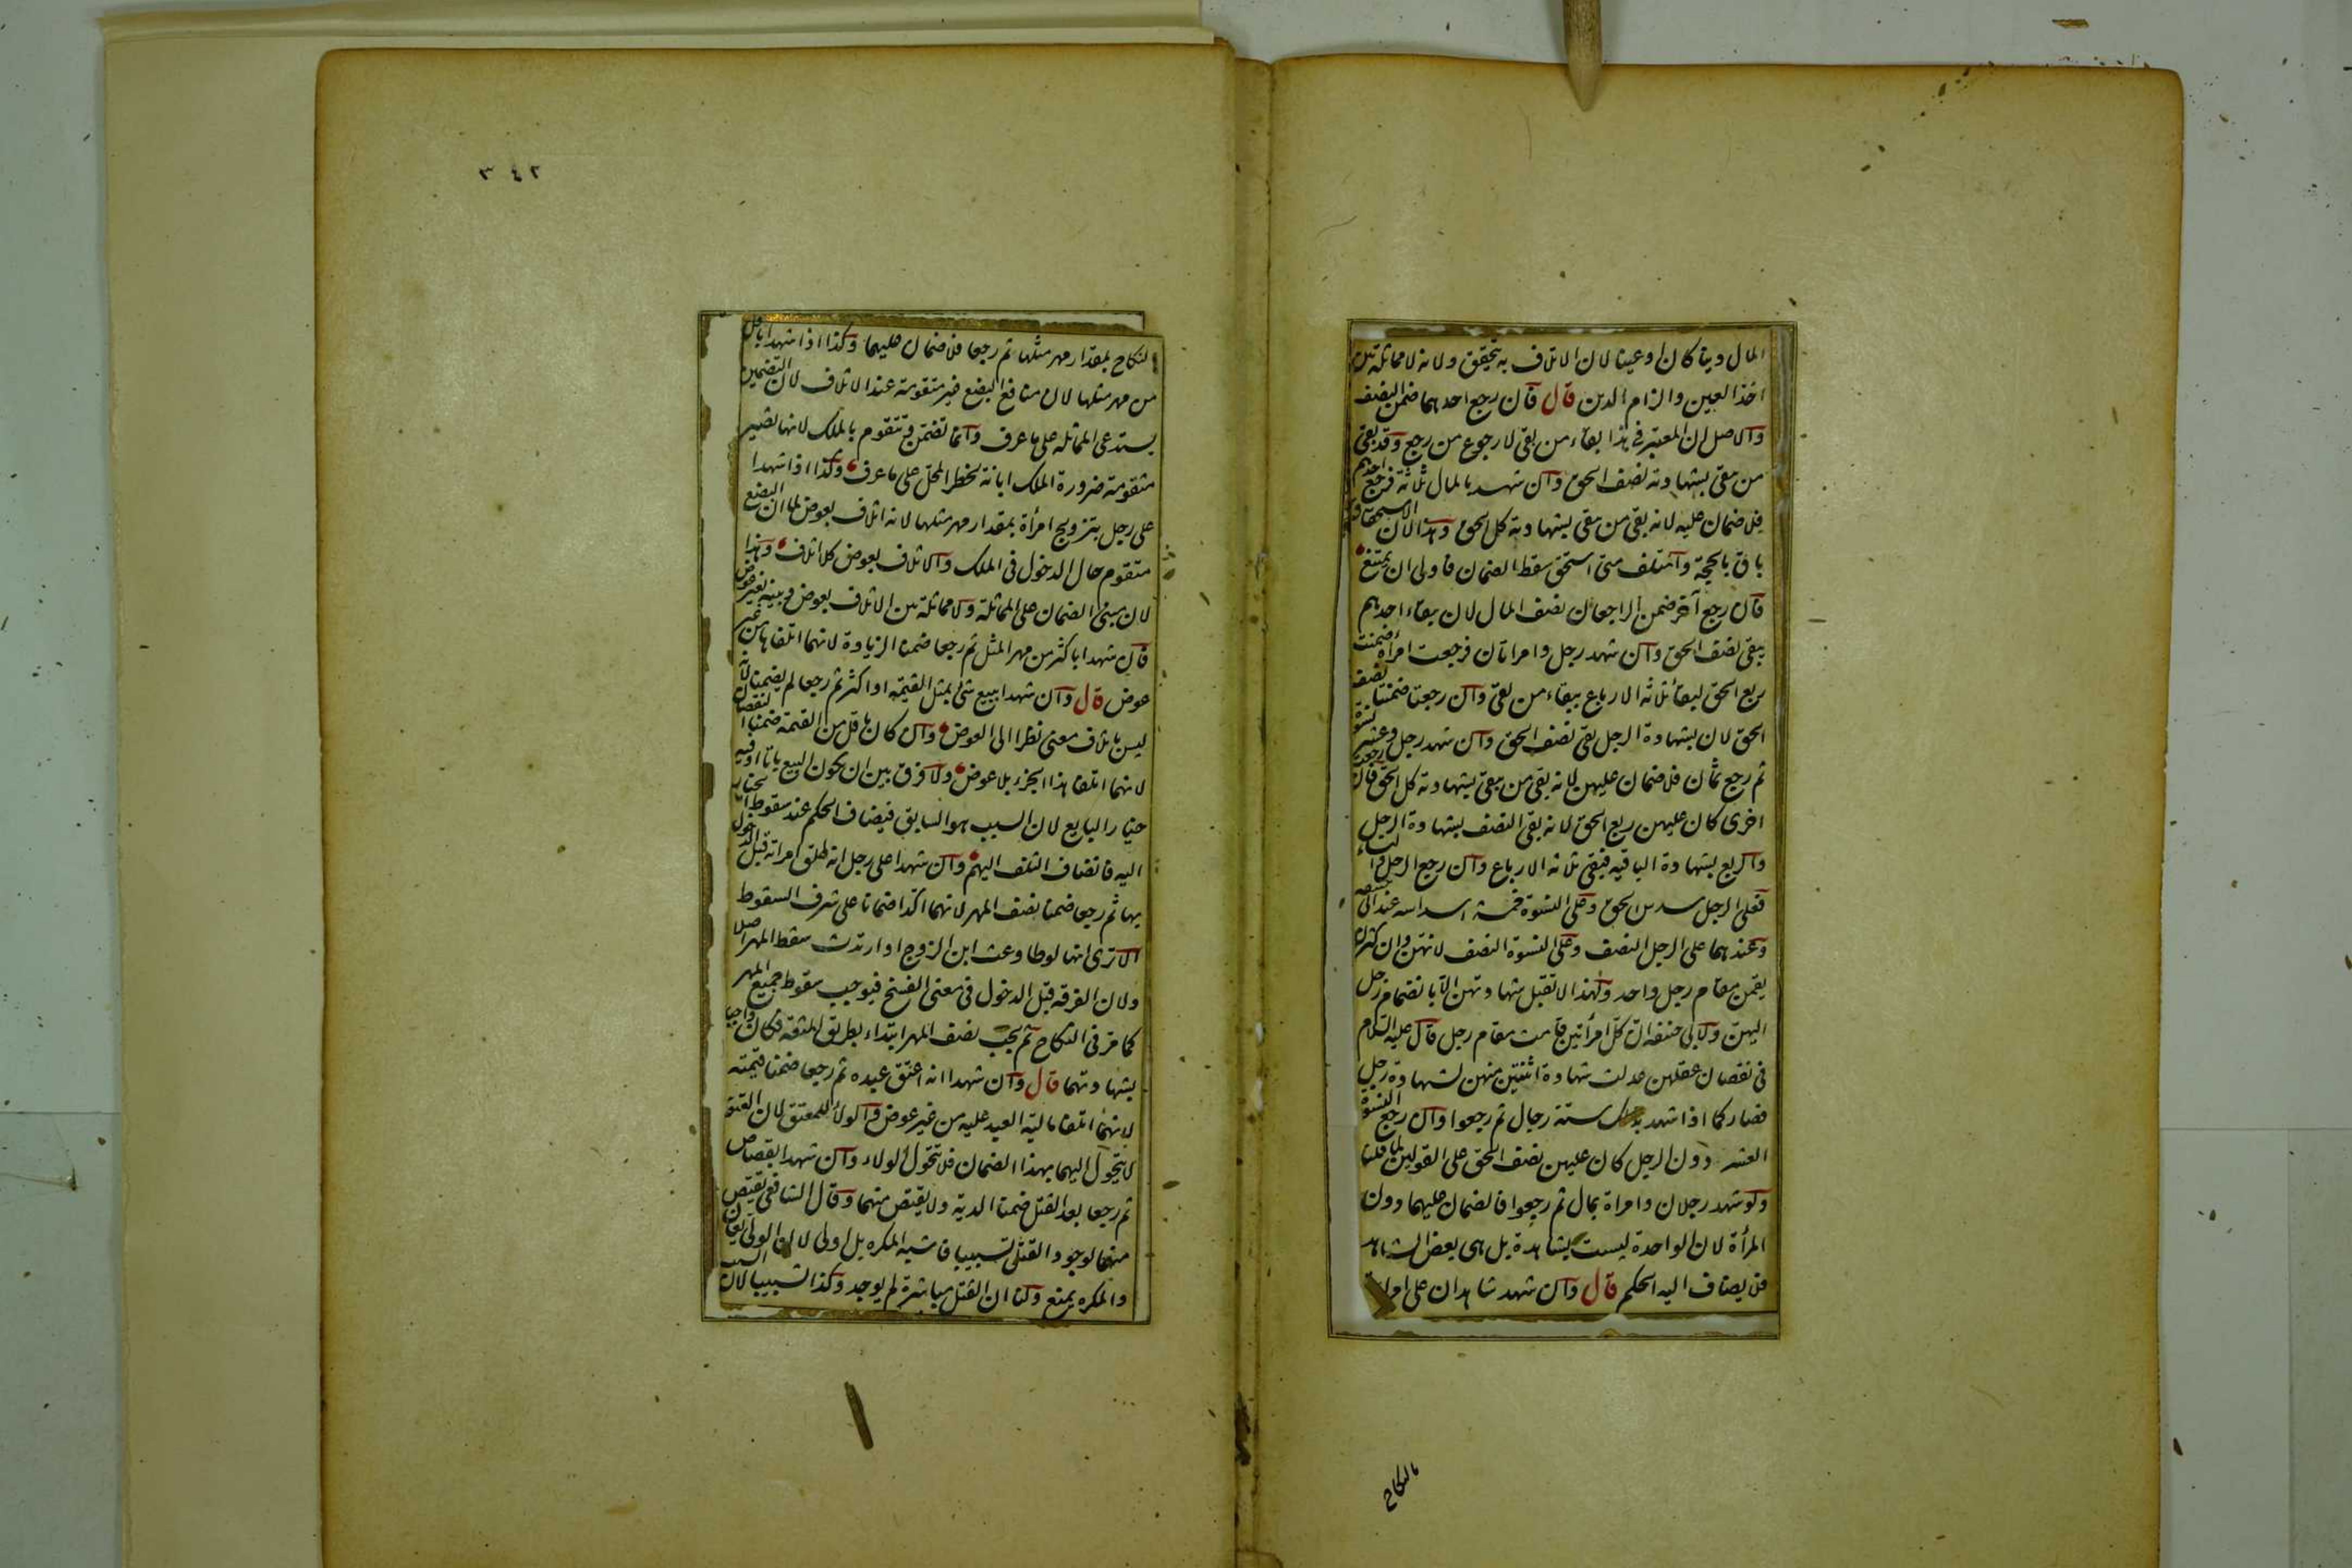 المال دينا كان او عينا لان الاتلاف به يتحقق ولانه لا مماثلة بين
اخذ العين والزام الدين قال فان رجع احدهما ضمن النصف
والاصل ان المعتبر فى هذا بقاء من بقى لا رجوع من رجع وقد بقى
من بقى بشهادته نصف الحق وان شهد بالمال ثلاثة فرجع احدهم
فلا ضمان عليه لانه بقى من بقى بشهادته كل الحق وهذا لان الاستحقاق
باق بالحجة والمتلف متى استحق سقط الضمان فاولى ان يمتنع
فان رجع آخر ضمن الراجعان نصف المال لان ببقاء احدهم
يبقى نصف الحق وان شهد رجل وامراتان فرجعت امرأة ضمنت
ربع الحق لبقاء ثلاثة الارباع ببقاء من بقى وان رجعتا ضمنتا نصف
الحق لان بشهادة الرجل بقى نصف الحق وان شهد رجل وعشر نسوة
ثم رجع ثمان فلا ضمان عليهن لانه بقى من يبقى بشهادته كل الحق فان رجعت
اخرى كان عليهن ربع الحق لانه بقى النصف بشهادة الرجل
والربع بشهادة الباقية فبقى ثلاثة الارباع وان رجع الرجل والنساء
فعلى الرجل سدس الحق وعلى النسوة خمسة اسداسه عند ابى حنيفه
وعندهما على الرجل النصف وعلى النسوة النصف لانهن وان كثرن
يقمن مقام رجل واحد ولهذا لا تقبل شهادتهن الا بانضمام رجل
اليهن ولابى حنيفه ان كل امرأتين قامت مقام رجل قال عليه السلام
فى نقصان عقلهن عدلت شهادة اثنتين منهن لشهادة رجل
فصار كما اذا شهد بذلك ستة رجال ثم رجعوا وان رجع النسوة
العشر دون الرجل كان عليهن نصف الحق على القولين لما قلنا
ولو شهد رجلان وامراة بمال ثم رجعوا فالضمان عليهما دون
المرأة لان الواحدة ليست بشاهدة بل هى بعض الشاهد
فلا يضاف اليه الحكم قال وان شهد شاهدان على امراة
بالنكاح
٣٤٢
بالنكاح بمقدار مهر مثلها ثم رجعا فلا ضمان عليهما وكذا اذا شهدا باقل
من مهر مثلها لان منافع البضع غير متقومة عند الاتلاف لان التضمين
يستدعى المماثله على ما عرف وانما تضمن وتتقوم بالملك لانها تصير
متقومة ضرورة الملك ابانة لخطر المحل على ما عرف وكذا اذا شهدا
على رجل بتزويج امرأة بمقدار مهر مثلها لانه اتلاف بعوض لما ان البضع
متقوم حال الدخول فى الملك والاتلاف بعوض كلا اتلاف وهذا
لان مبنى الضمان على المماثلة ولا مماثلة بين الاتلاف بعوض وبينه بغير عوض
فان شهدا باكثر من مهر المثل ثم رجعا ضمنا الزيادة لانهما اتلفاها من غير
عوض قال وان شهدا ببيع شئ بمثل القيمة او اكثر ثم رجعا لم يضمنا لانه
ليس باتلاف معنى نظرا الى العوض وان كان باقل من القيمة ضمنا النقصان
لانهما اتلفا هذا الجزء بلا عوض ولا فرق بين ان يكون البيع باتا او فيه
خيار البايع لان السبب هو السابق فيضاف الحكم عند سقوط الخيار
اليه فانضاف التلف اليهم وان شهدا على رجل انه طلق امراته قبل الدخول
بها ثم رجعا ضمنا نصف المهر لانهما اكدا ضمانا على شرف السقوط
الا ترى انها لو طاوعت ابن الزوج او ارتدت سقط المهر اصلا
ولان الفرقه قبل الدخول فى معنى الفسخ فيوجب سقوط جميع المهر
كما مر فى النكاح ثم يجب نصف المهر ابتداء بطريق المتعة فكان واجبا
بشهادتهما قال وان شهدا انه اعتق عبده ثم رجعا ضمنا قيمته
لانهما اتلفا مالية العبد عليه من غير عوض والولاء للمعتق لان العتق
لا يتحول اليهما بهذا الضمان فلا يتحول الولاء وان شهدا بقصاص
ثم رجعا بعد القتل ضمنا الدية ولا يقتص منهما وقال الشافعى يقتص
منهما لوجود القتل تسبيبا فاشبه المكره بل اولى لان الولى يعان
والمكره يمنع ولنا ان القتل مباشرة لم يوجد وكذا تسبيبا لان السبب